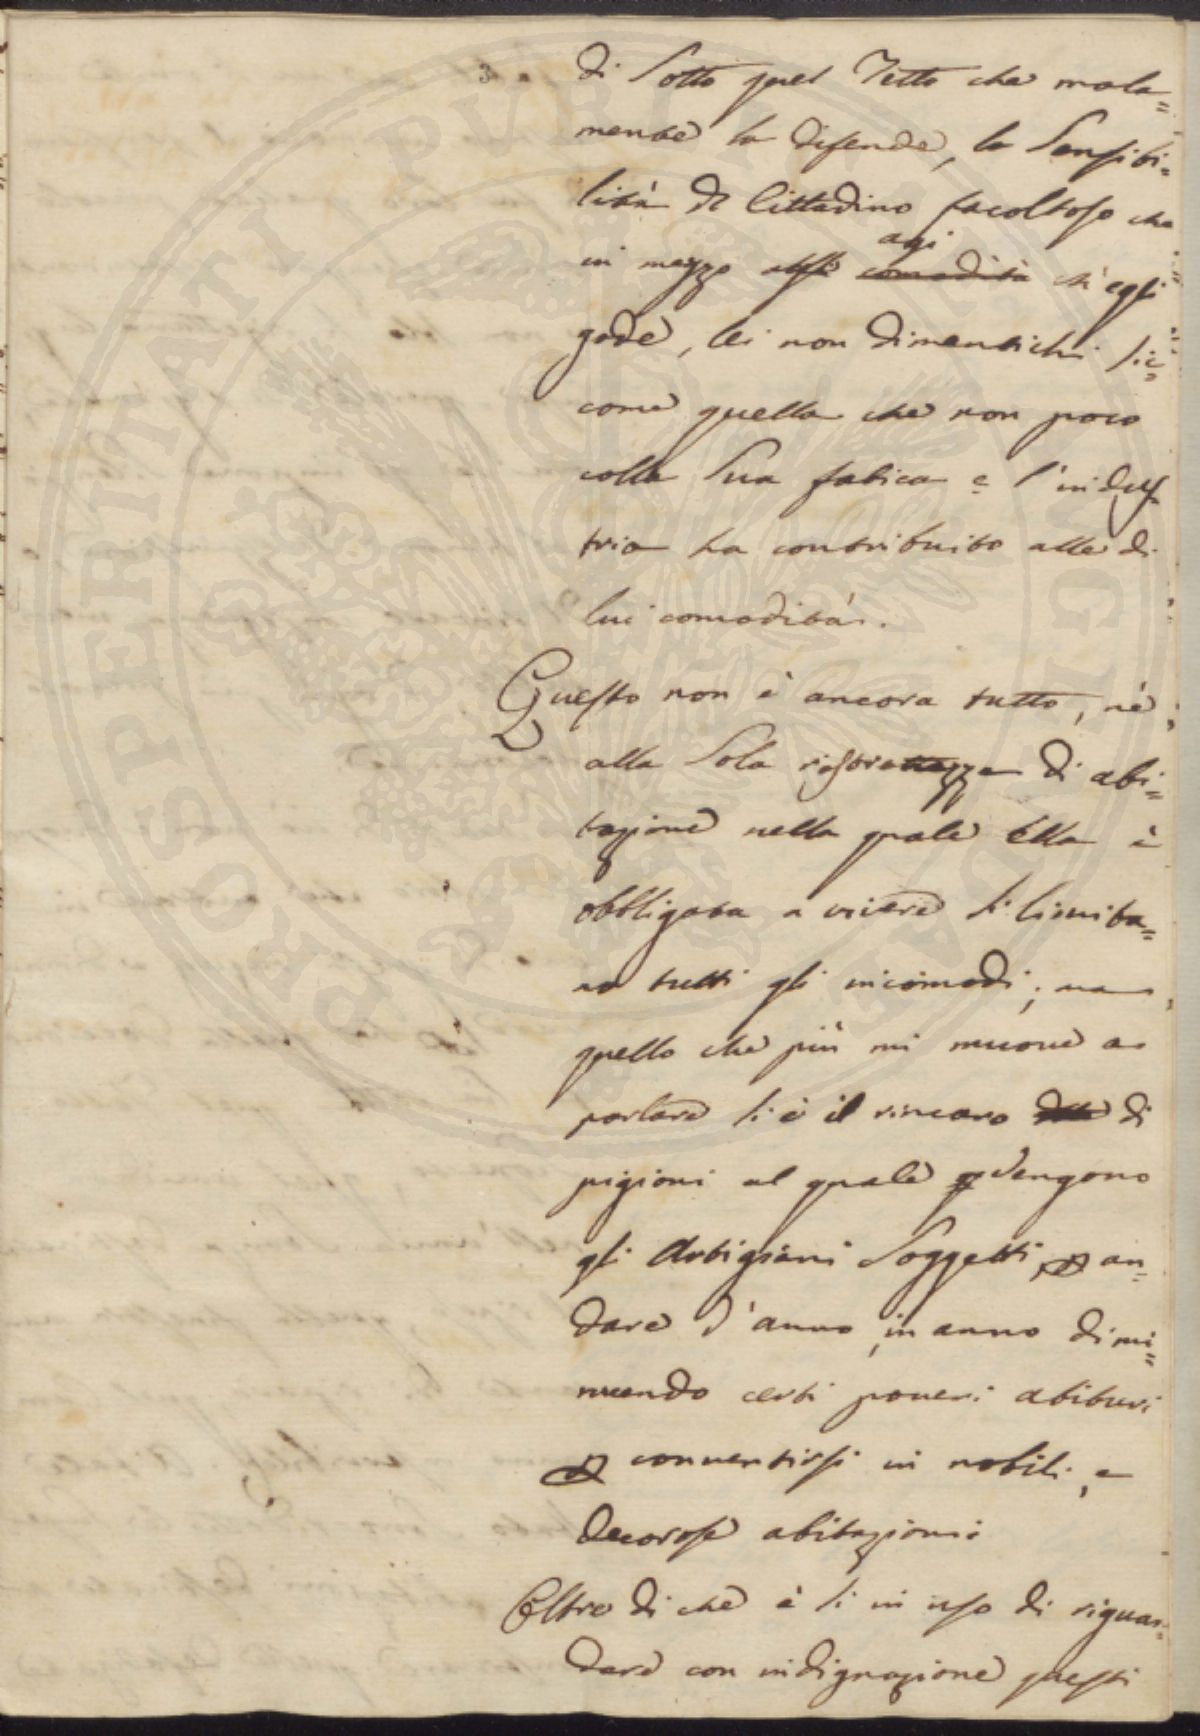 di sotto quel Tetto che mala=
mente la difende, la Sensibi=
lità di Cittadino facoltoso che
in mezzo agli agi comodità ch'egli
gode, lei non dimentichi sic=
come quella che non poco
colla sua fatica e l'indus=
tria ha contribuito alle di
lui comodità.
Questo non è ancora tutto, nè
alla sola ristrettezza di abi=
tazione nella quale Ella è
obbligata a vivere si limita=
no tutti gli incomodi; ma
quello che più mi muove a
parlare si è il rincaro di
pigioni al quale vengono
gli Artigiani soggetti, p an=
dare d'anno in anno dimi=
nuendo certi poveri abituri
p convertirsi in nobili, e
decorose abitazioni:
Oltre di che è si in uso di riguar=
dare con indignazione questi
PROSPERITATI PUBLICÆ AUGENDÆ